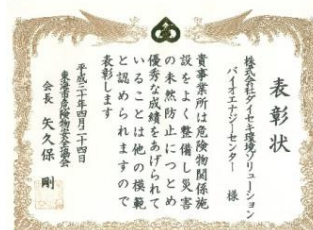 表彰状
株式会社ダイセキ環境ソリューション
バイオエナジーセンター 様
貴事業所は危険物関係施
設をよく整備し災害
の未然防止につとめ
優秀な成績をあげられて
いることは他の模範
と認められますので
表彰します
平成三十年四月二十四日
東海市危険物安全協会
会長 矢久保 剛